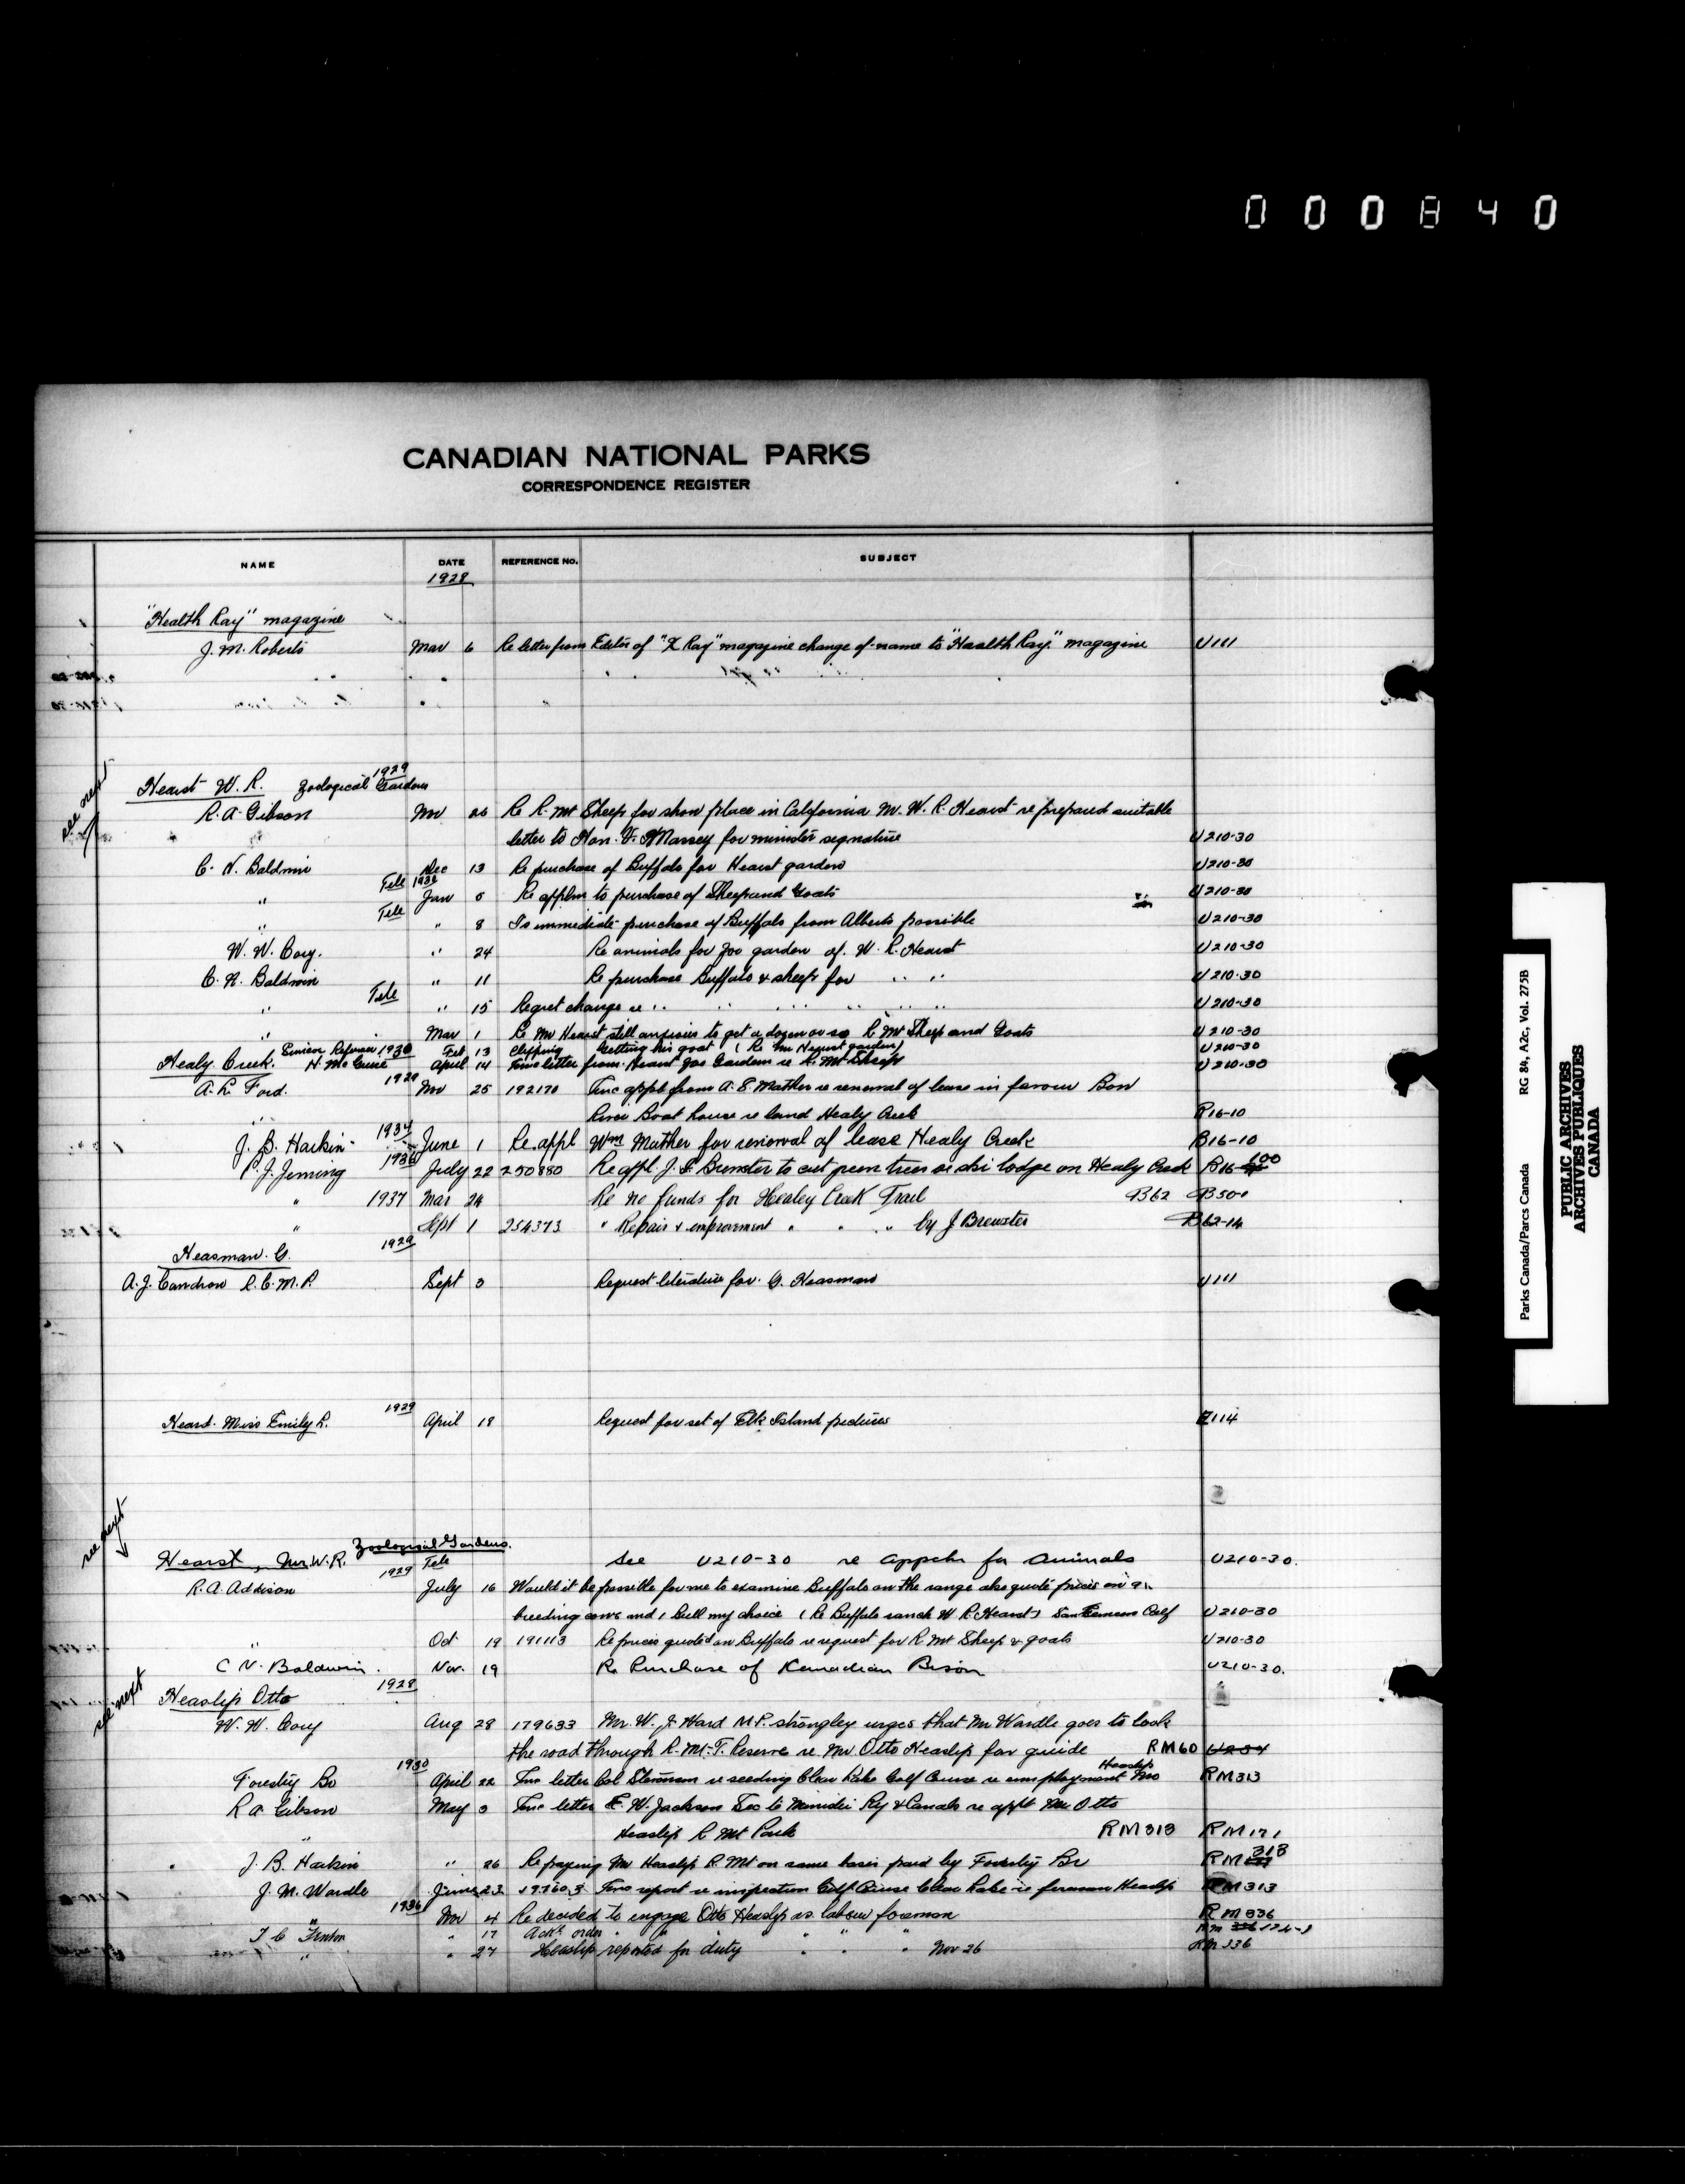 000840
CANADIAN NATIONAL PARKS
CORRESPONDENCE REGISTER
NAME DATE REFERENCE NO. SUBJECT
1928
"Health Ray" magazine
J. M. Roberts Mar 6 Re letter from Editor of "X Ray" magazine change of name to "Health Ray" magazine U111
see next
1929
Hearst W. R. Zoological Gardens
R. A. Gibson Nov 26 Re R. Mt Sheep for show place in California Mr. W. R. Hearst re prepared suitable
" letter to Hon. V. Massey for minister signature U210-30
C. N. Baldwin Dec 13 Re purchase of Buffalo for Hearst gardens U210-30
" Tele Jan Re appln to purchase of Sheep and Goats U210-30
" Tele " 8 Is immediate purchase of Buffalo from Alberta possible U210-30
W. W. Cory. " 24 Re animals for zoo garden of W. R. Hearst U210-30
C. N. Baldwin " 11 Re purchase Buffalo & sheep for " " U210-30
" Tele " 15 Regret change re " " " " " " U210-30
" Mar 1 Re Mr Hearst still anxious to get a dozen or so R Mt Sheep and Goats U210-30
1930 Feb 13 Clipping Getting his goat (Re Mr Hearst garden) U210-30
Healy Creek. H. McGuire April 14 Trans letter from Hearst Zoo Gardens re R. Mt Sheep U210-30
1929
A. L. Ford. Nov 25 192170 Trnc applt from A. E. Mather re renewal of lease in favour Bow
" River Boat house re land Healy Creek R16-10
J. B. Harkin 1934 June 1 Re appl Wm Mather for renewal of lease Healy Creek B16-10
P. J. Jennings 1936 July 22 250880 Re appl. J. I. Brewster to cut green trees re ski lodge on Healy Creek B16-100
" 1937 Mar 24 Re no funds for Healey Creek Trail B62 B50-1
" Sept 1 254373 " Repair & improvement " " " by J Brewster B62-14
1929
Heasman. G.
A. J. Candron R. C. M. P. Sept 3 Request literature for G. Heasman U111
1929
Heard. Miss Emily R. April 18 Request for set of Elk Island pictures E114
see next
Zoological Gardens.
Hearst, Mr. W. R. See U210-30 re appctn for animals U210-30.
1929 Tele
R. A. Addison July 16 Would it be possible for me to examine Buffalo on the range also quote prices on
breeding cows and 1 bull my choice (Re Buffalo ranch W R. Hearst) San Simeon Calf U210-30
" Oct 19 191113 Re prices quoted on Buffalo re request for R Mt Sheep & goats U210-30
C N. Baldwin. Nov. 19 Re Purchase of Kanadian Bison U210-30.
see next
1928
Heaslip Otto
W. W. Cory Aug 28 179633 Mr. W. J. Ward M.P. strongley urges that Mr Wardle goes to look
the road through R. Mt. T. Reserve re Mr. Otto Heaslip for guide RM60 U234
1930
Forestry Br April 22 Trns letter Col Stevenson re seeding Clear Lake Golf Course re employment Mr Heaslip RM313
R A Gibson May 3 Trnc letter E. W. Jackson Sec to Minister Ry & Canals re applt Mr Otto
" Heaslip R Mt Park RM313 RM171
J. B. Harkin " 26 Re paying Mr Heaslip R. Mt on same basis paid by Forestry Br RM313
J. M. Wardle June 23 Trns report re inspection Golf Course Clear Lake re foreman Heaslip RM313
1936
" Nov 4 Re decided to engage Otto Heaslip as labour foreman RM336
T C Fenton " 17 Ack. order " " " " "
" " 27 Heaslip reported for duty " " " Nov 26 RM336
Parks Canada/Parcs Canada RG 84, A2c, Vol. 275B
PUBLIC ARCHIVES
ARCHIVES PUBLIQUES
CANADA